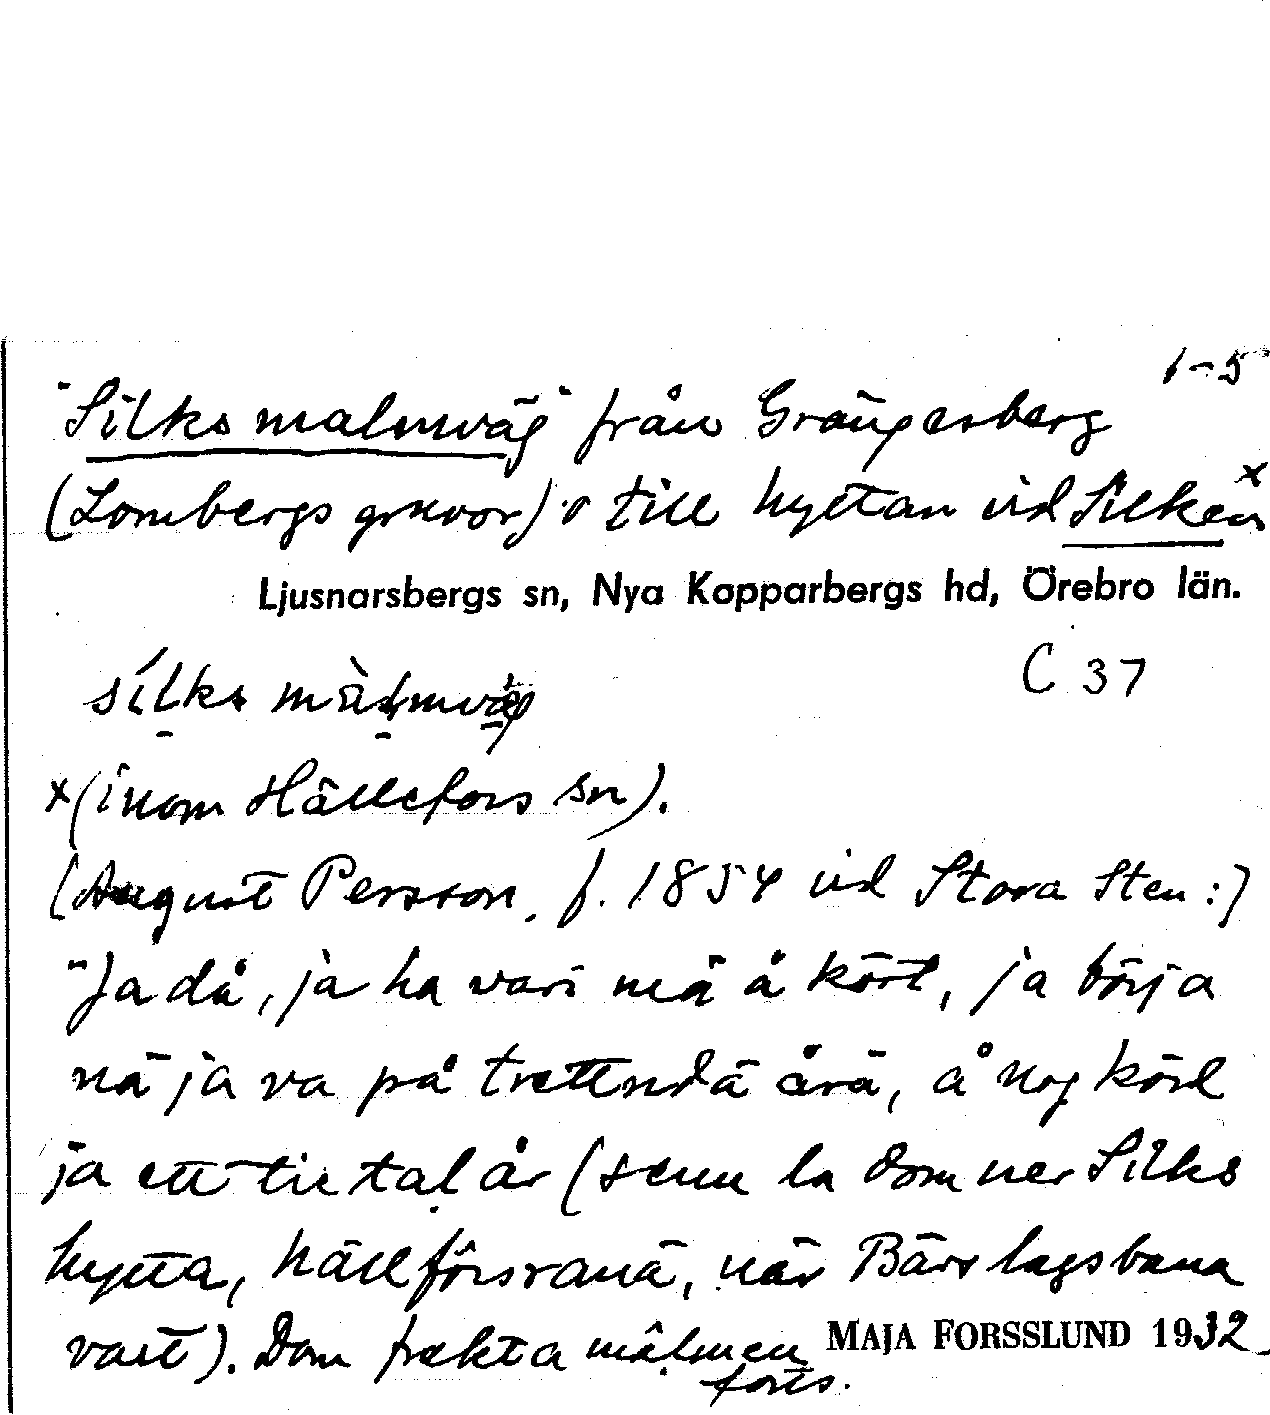 1-5
"Silks malmväg" från Grängesberg
(Lombergs gruvor) o till hyttan vid Silken x
Ljusnarsbergs sn, Nya Kopparbergs hd, Örebro län.
C 37
silks màlmväg
x (inom Hällefors sn).
(August Persson, f. 1854 vid Stora Sten:)
"Ja då, ja ha vari mä å kört, ja börja
nä ja va på trettndä årä, å nog körd
ja ett tie tal år (senn la dom ner Silks
hytta, hällförsranä, när Bärslagsbana
vart). Dom frakta målmen
forts.
MAJA FORSSLUND 1932